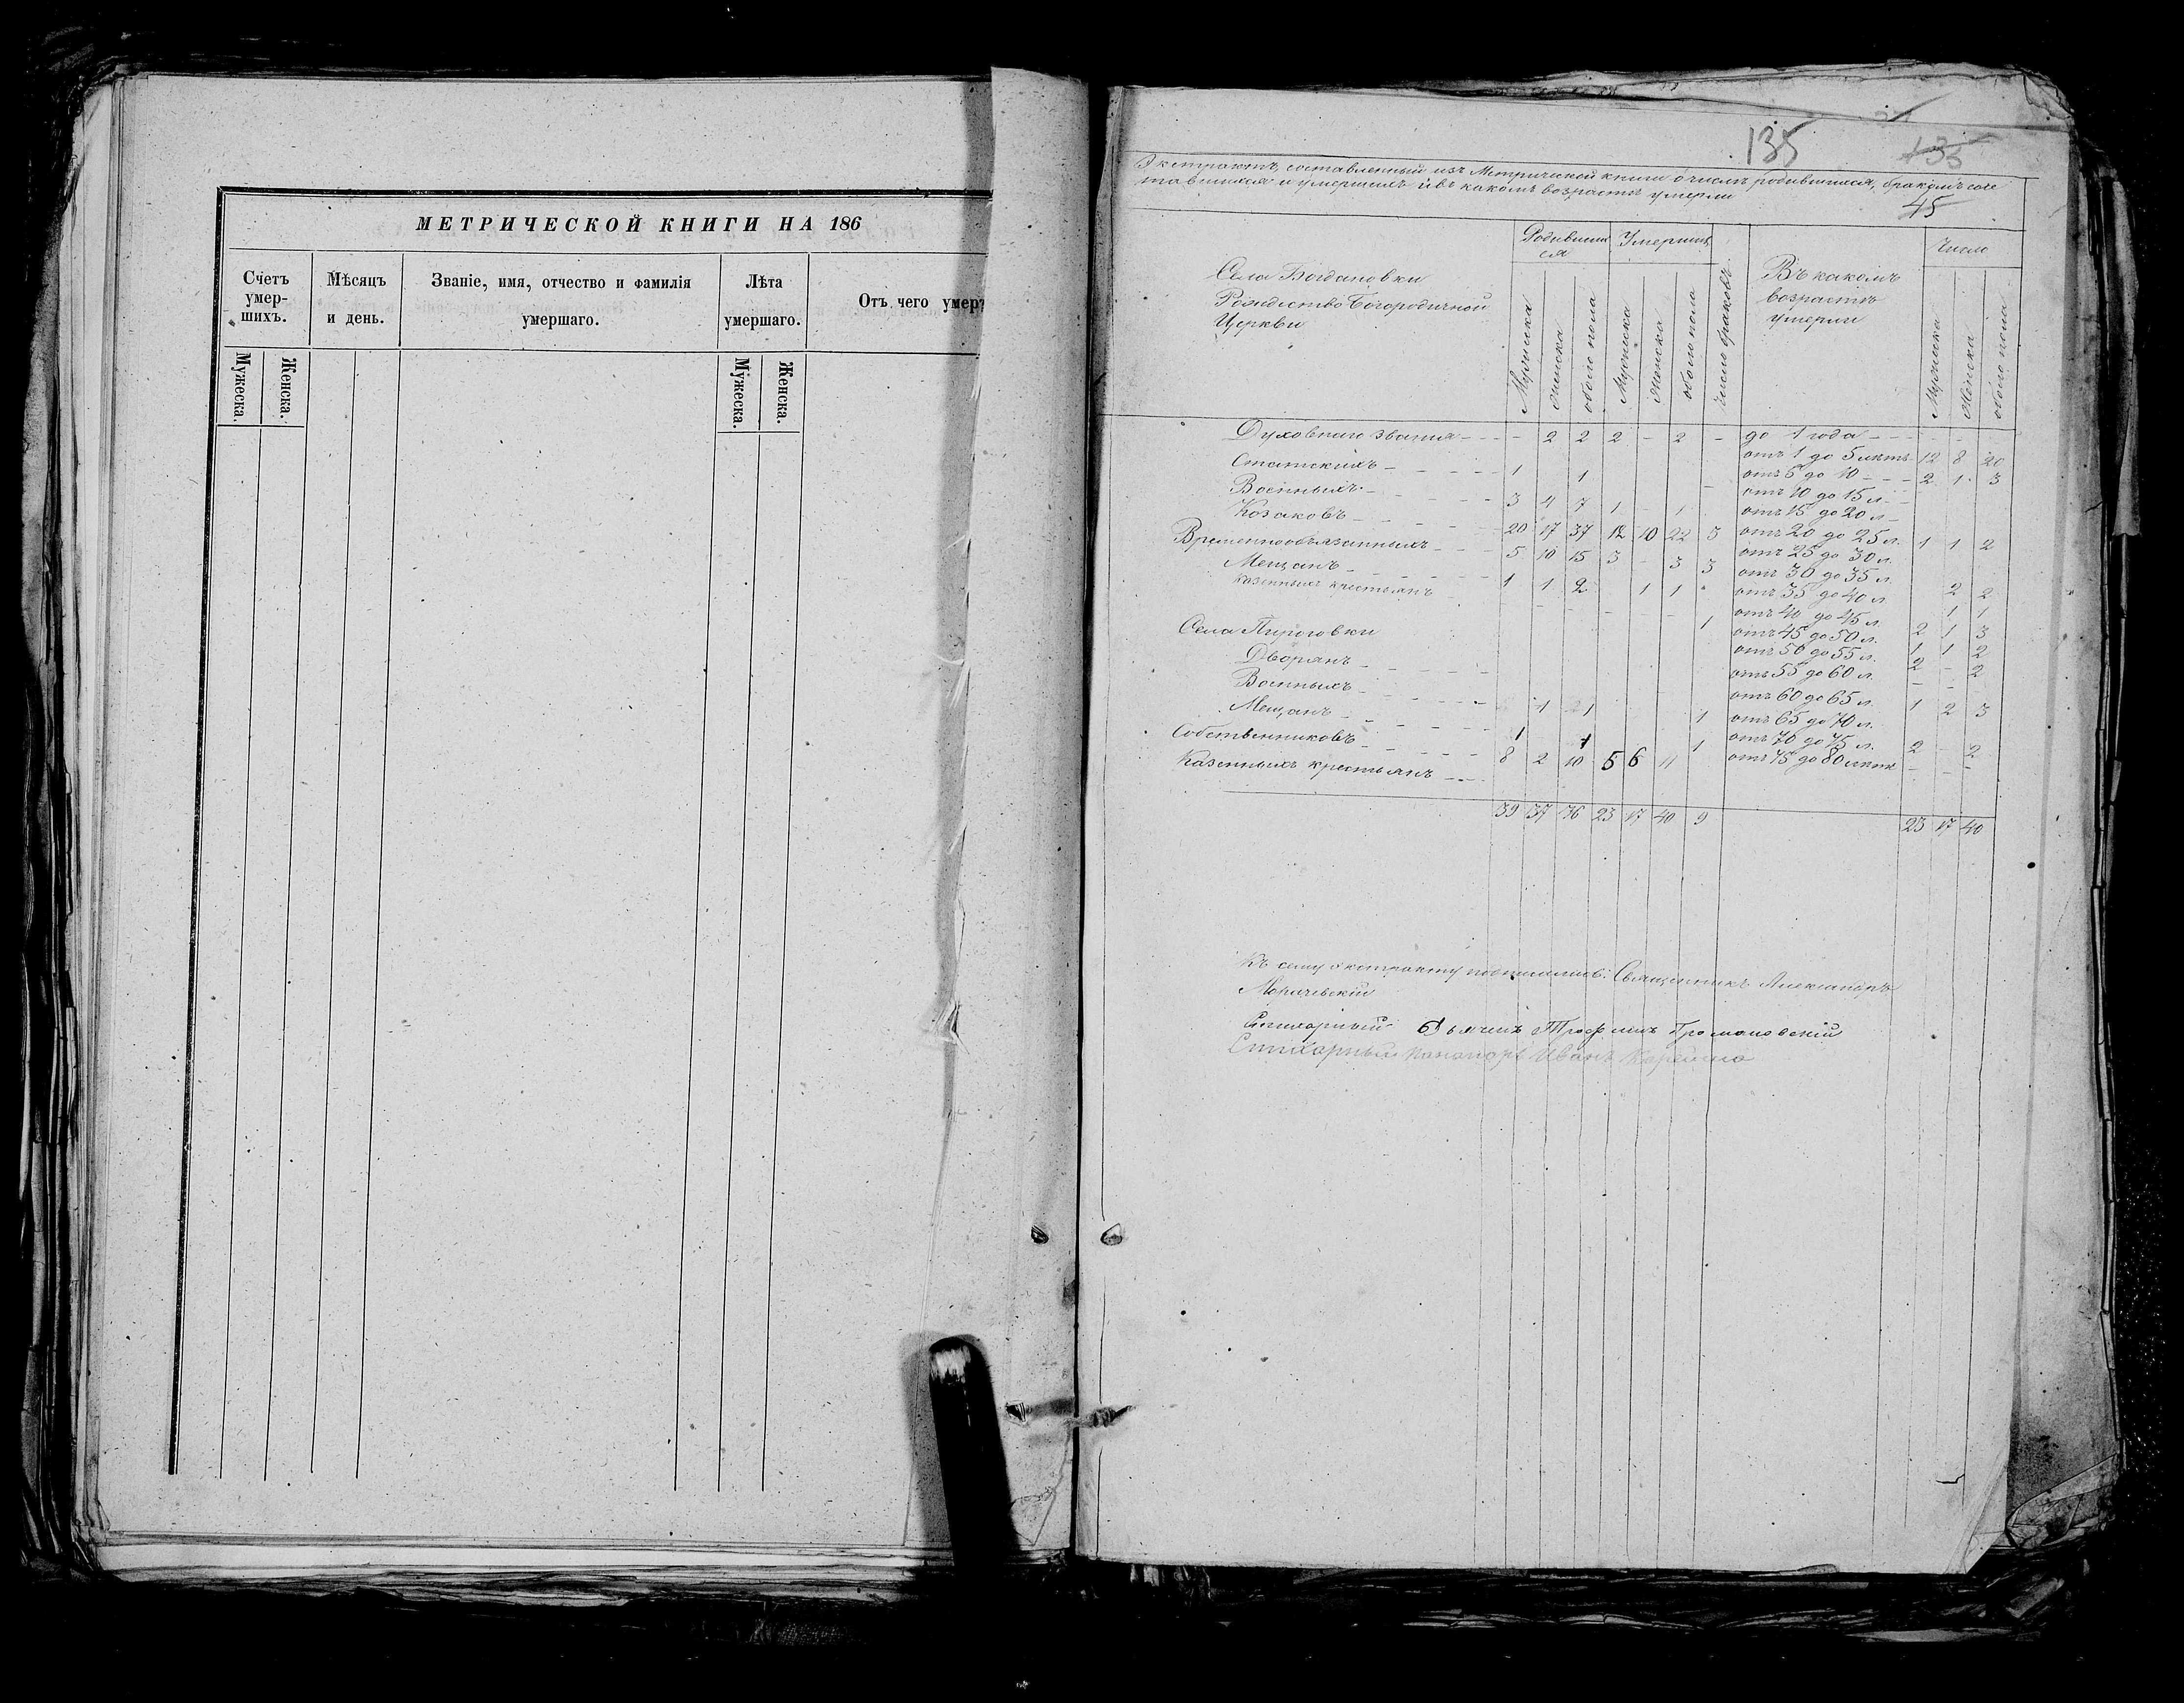 МЕТРИЧЕСКОЙ КНИГИ НА 186
Счетъ умер-шихъ.
Мѣсяцъ и день.
Званіе, имя, отчество и фамилія умершаго.
Лѣта умершаго.
Отъ чего умеръ
Мужеска. Женска. Мужеска. Женска.
135 135
Экстрактъ, составленный изъ Метрической книги о числѣ родившихся, бракомъ соче
тавшихся и умершихъ и въ какомъ возрастѣ умерли
45
Села Богдановки
Рождество Богородичной
Церкви
Родивших
ся
Умершихъ
Число браковъ
Въ какомъ
возрастѣ
умерли
Число
Мужеска Женска обоего пола Мужеска Женска обоего пола Мужеска Женска обоего пола
Духовнаго званія - - - 2 2 2 - 2 - до 1 года - - - -
Статскихъ - - - - 1 1 отъ 1 до 5 лѣтъ 12 8 20
Военныхъ - - - - 3 4 7 1 1 отъ 5 до 10 - - - 2 1 3
отъ 10 до 15 л.
Козаковъ - - - - 20 17 37 12 10 22 3 отъ 15 до 20 л.
Временнообязанныхъ - - - 5 10 15 3 - 3 3 отъ 20 до 25 л. 1 1 2
Мещанъ - - - - 1 1 2 1 1 отъ 25 до 30 л.
Казенныхъ крестьянъ - - - - - - 1 отъ 30 до 35 л.
отъ 35 до 40 л. 2 2
отъ 40 до 45 л. 1 1
Села Пироговки
отъ 45 до 50 л. 2 1 3
Дворянъ - - - -
отъ 50 до 55 л. 1 1 2
Военныхъ - - - -
отъ 55 до 60 л. 2 - 2
Мещанъ - - - - 1 1 1 отъ 60 до 65 л. - - -
отъ 65 до 70 л. 1 2 3
Собственниковъ - - - - 1 1 1 отъ 70 до 75 л.
Казенныхъ крестьянъ - - 8 2 10 5 6 11 отъ 75 до 80 лѣтъ 2 - 2
39 37 76 23 17 40 9 23 17 40
Къ сему экстракту подписались: Священникъ Александръ
Стихарный Дьячекъ Трофимъ Громановскій
Стихарный Пономарь Иванъ